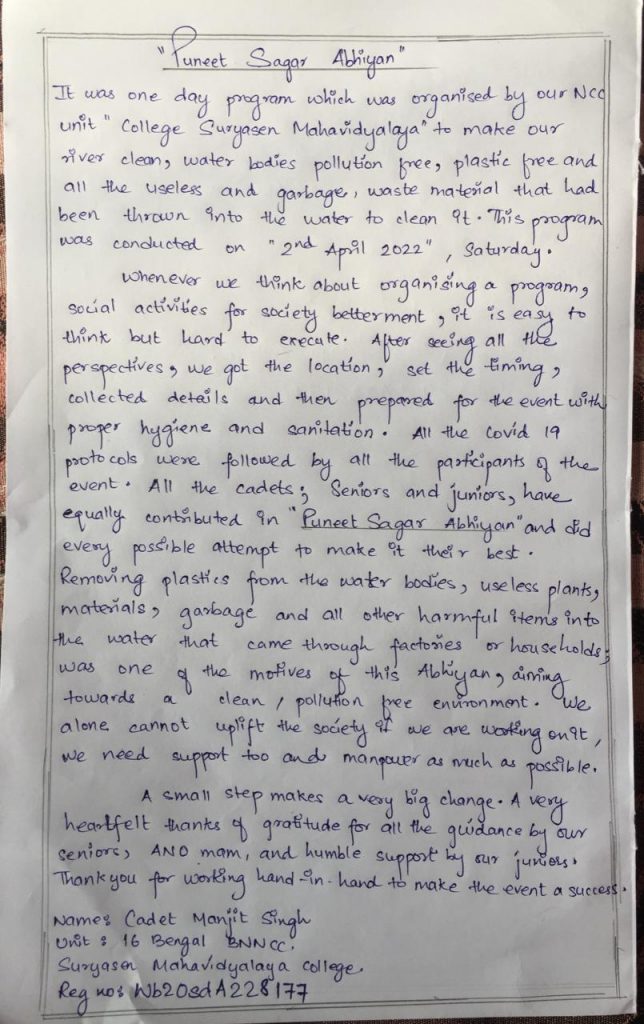 "Puneet Sagar Abhiyan"
It was one day program which was organised by our NCC
unit "College Suryasen Mahavidyalaya" to make our
river clean, water bodies pollution free, plastic free and
all the useless and garbage, waste material that had
been thrown into the water to clean it. This program
was conducted on "2nd April 2022", Saturday.
Whenever we think about organising a program,
social activities for society betterment, it is easy to
think but hard to execute. After seeing all the
perspectives, we got the location, set the timing,
collected details and then prepared for the event with
proper hygiene and sanitation. All the Covid 19
protocols were followed by all the participants of the
event. All the cadets; Seniors and juniors, have
equally contributed in "Puneet Sagar Abhiyan" and did
every possible attempt to make it their best.
Removing plastics from the water bodies, useless plants,
materials, garbage and all other harmful items into
the water that came through factories or households;
was one of the motives of this Abhiyan, aiming
towards a clean, pollution free environment. We
alone cannot uplift the society if we are working on it,
we need support too and manpower as much as possible.
A small step makes a very big change. A very
heartfelt thanks of gratitude for all the guidance by our
seniors, ANO mam, and humble support by our juniors.
Thankyou for working hand-in-hand to make the event a success.
Name: Cadet Manjit Singh
Unit: 16 Bengal BN NCC.
Suryasen Mahavidyalaya College.
Reg no: Wb20sdA228177